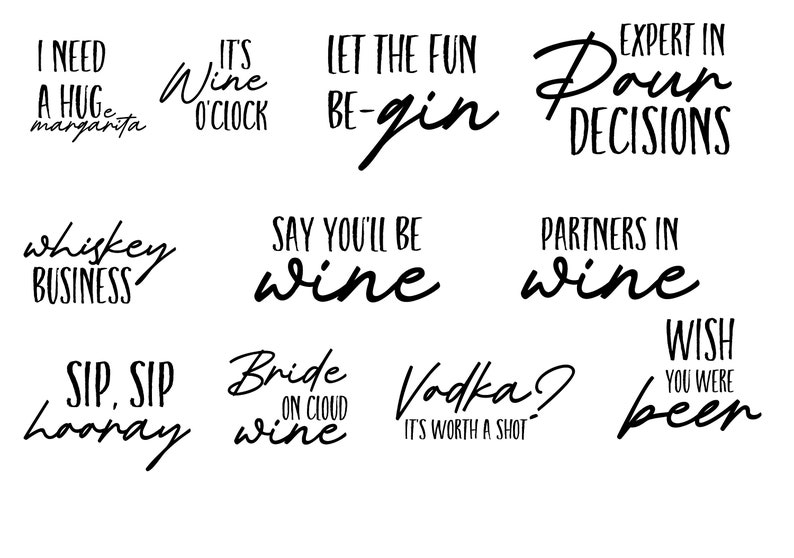 I NEED
A HUGe
margarita
IT'S
Wine
O'CLOCK
LET THE FUN
BE-gin
EXPERT IN
Pour
DECISIONS
whiskey
BUSINESS
SAY YOU'LL BE
wine
PARTNERS IN
wine
SIP, SIP
hooray
Bride
ON CLOUD
wine
Vodka?
IT'S WORTH A SHOT
WISH
YOU WERE
beer